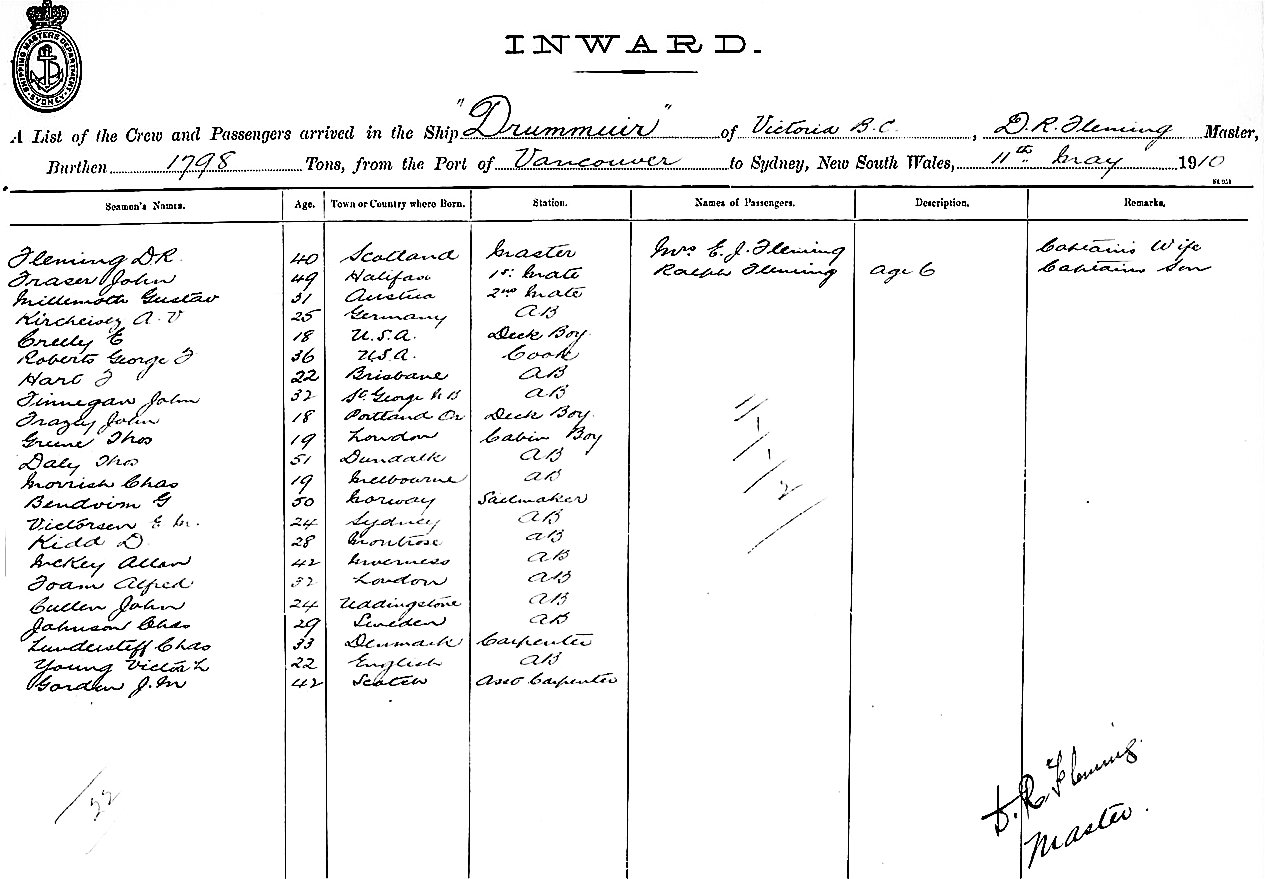 SHIPPING MASTERS DEPARTMENT SYDNEY
INWARD.
A List of the Crew and Passengers arrived in the Ship "Drummuir" of Victoria B.C. , D.R. Fleming Master,
Burthen 1798 Tons, from the Port of Vancouver to Sydney, New South Wales, 11th May 1910
Seamen's Names. Age. Town or Country where Born. Station. Names of Passengers. Description. Remarks.
Fleming D R. 40 Scotland Master Mrs E. J. Fleming Captains Wife
Fraser John 49 Halifax 1st Mate Ralph Fleming age 6 Captains Son
Gustav 31 Austria 2nd Mate
A. V 25 Germany AB
Creely E 18 U.S.A. Deck Boy
Roberts George F 36 U.S.A. Cook
Hart F 22 Brisbane AB
Finnegan John 32 St George N B AB
Frazey John 18 Portland Or Deck Boy
Greene Thos 19 London Cabin Boy
Daly Thos 51 Dundalk AB
Morrish Chas 19 Melbourne AB
G 50 Norway Sailmaker
Victorsen E M. 24 Sydney AB
Kidd D 28 Montrose AB
McKey Allan 42 Inverness AB
Foam Alfred 32 London AB
Cullen John 24 Uddingstone AB
Johnson Chas 29 Sweden AB
Chas 33 Denmark Carpenter
Young Victor L 22 English AB
Gordon J. M 42 Scotch Asst Carpenter
1/1/2
22
D. R. Fleming
Master.